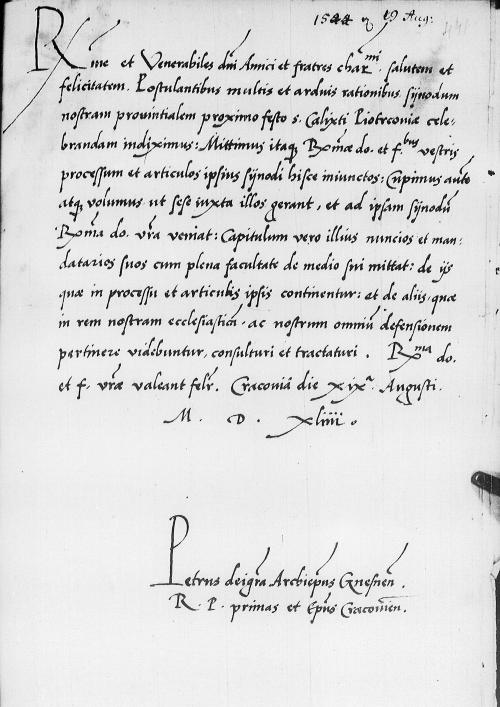 1544 19 Aug:
Rme et Venerabiles dni Amici et fratres charmi. salutem et
felicitatem. Postulantibus multis et arduis rationibus sÿnodum
nostram prouintialem proximo festo s. Calixti Piotrcouiæ cele-
brandam indiximus: Mittimus itaq; Rxmæ do. et f.bus vestris
processum et articulos ipsius sÿnodi hisce iniunctos: Cupimus aute
atq; volumus ut sese iuxta illos gerant, et ad ipsam sÿnodu
Rxma do. vra veniat: Capitulum vero illius nuncios et man-
datarios suos cum plena facultate de medio sui mittat: de ijs
quæ in processu et articulis ipsis continentur: et de aliis, quæ
in rem nostram ecclesiastica. ac nostrum omniu defensionem
pertinere videbuntur, consulturi et tractaturi. Rxma do.
et f. vræ valeant felr. Cracouiæ die xixa. Augusti.
M. D. xliiii.
Petrus dei gra Archiepus Gnesnen.
R. P. primas et Epus Cracouien.